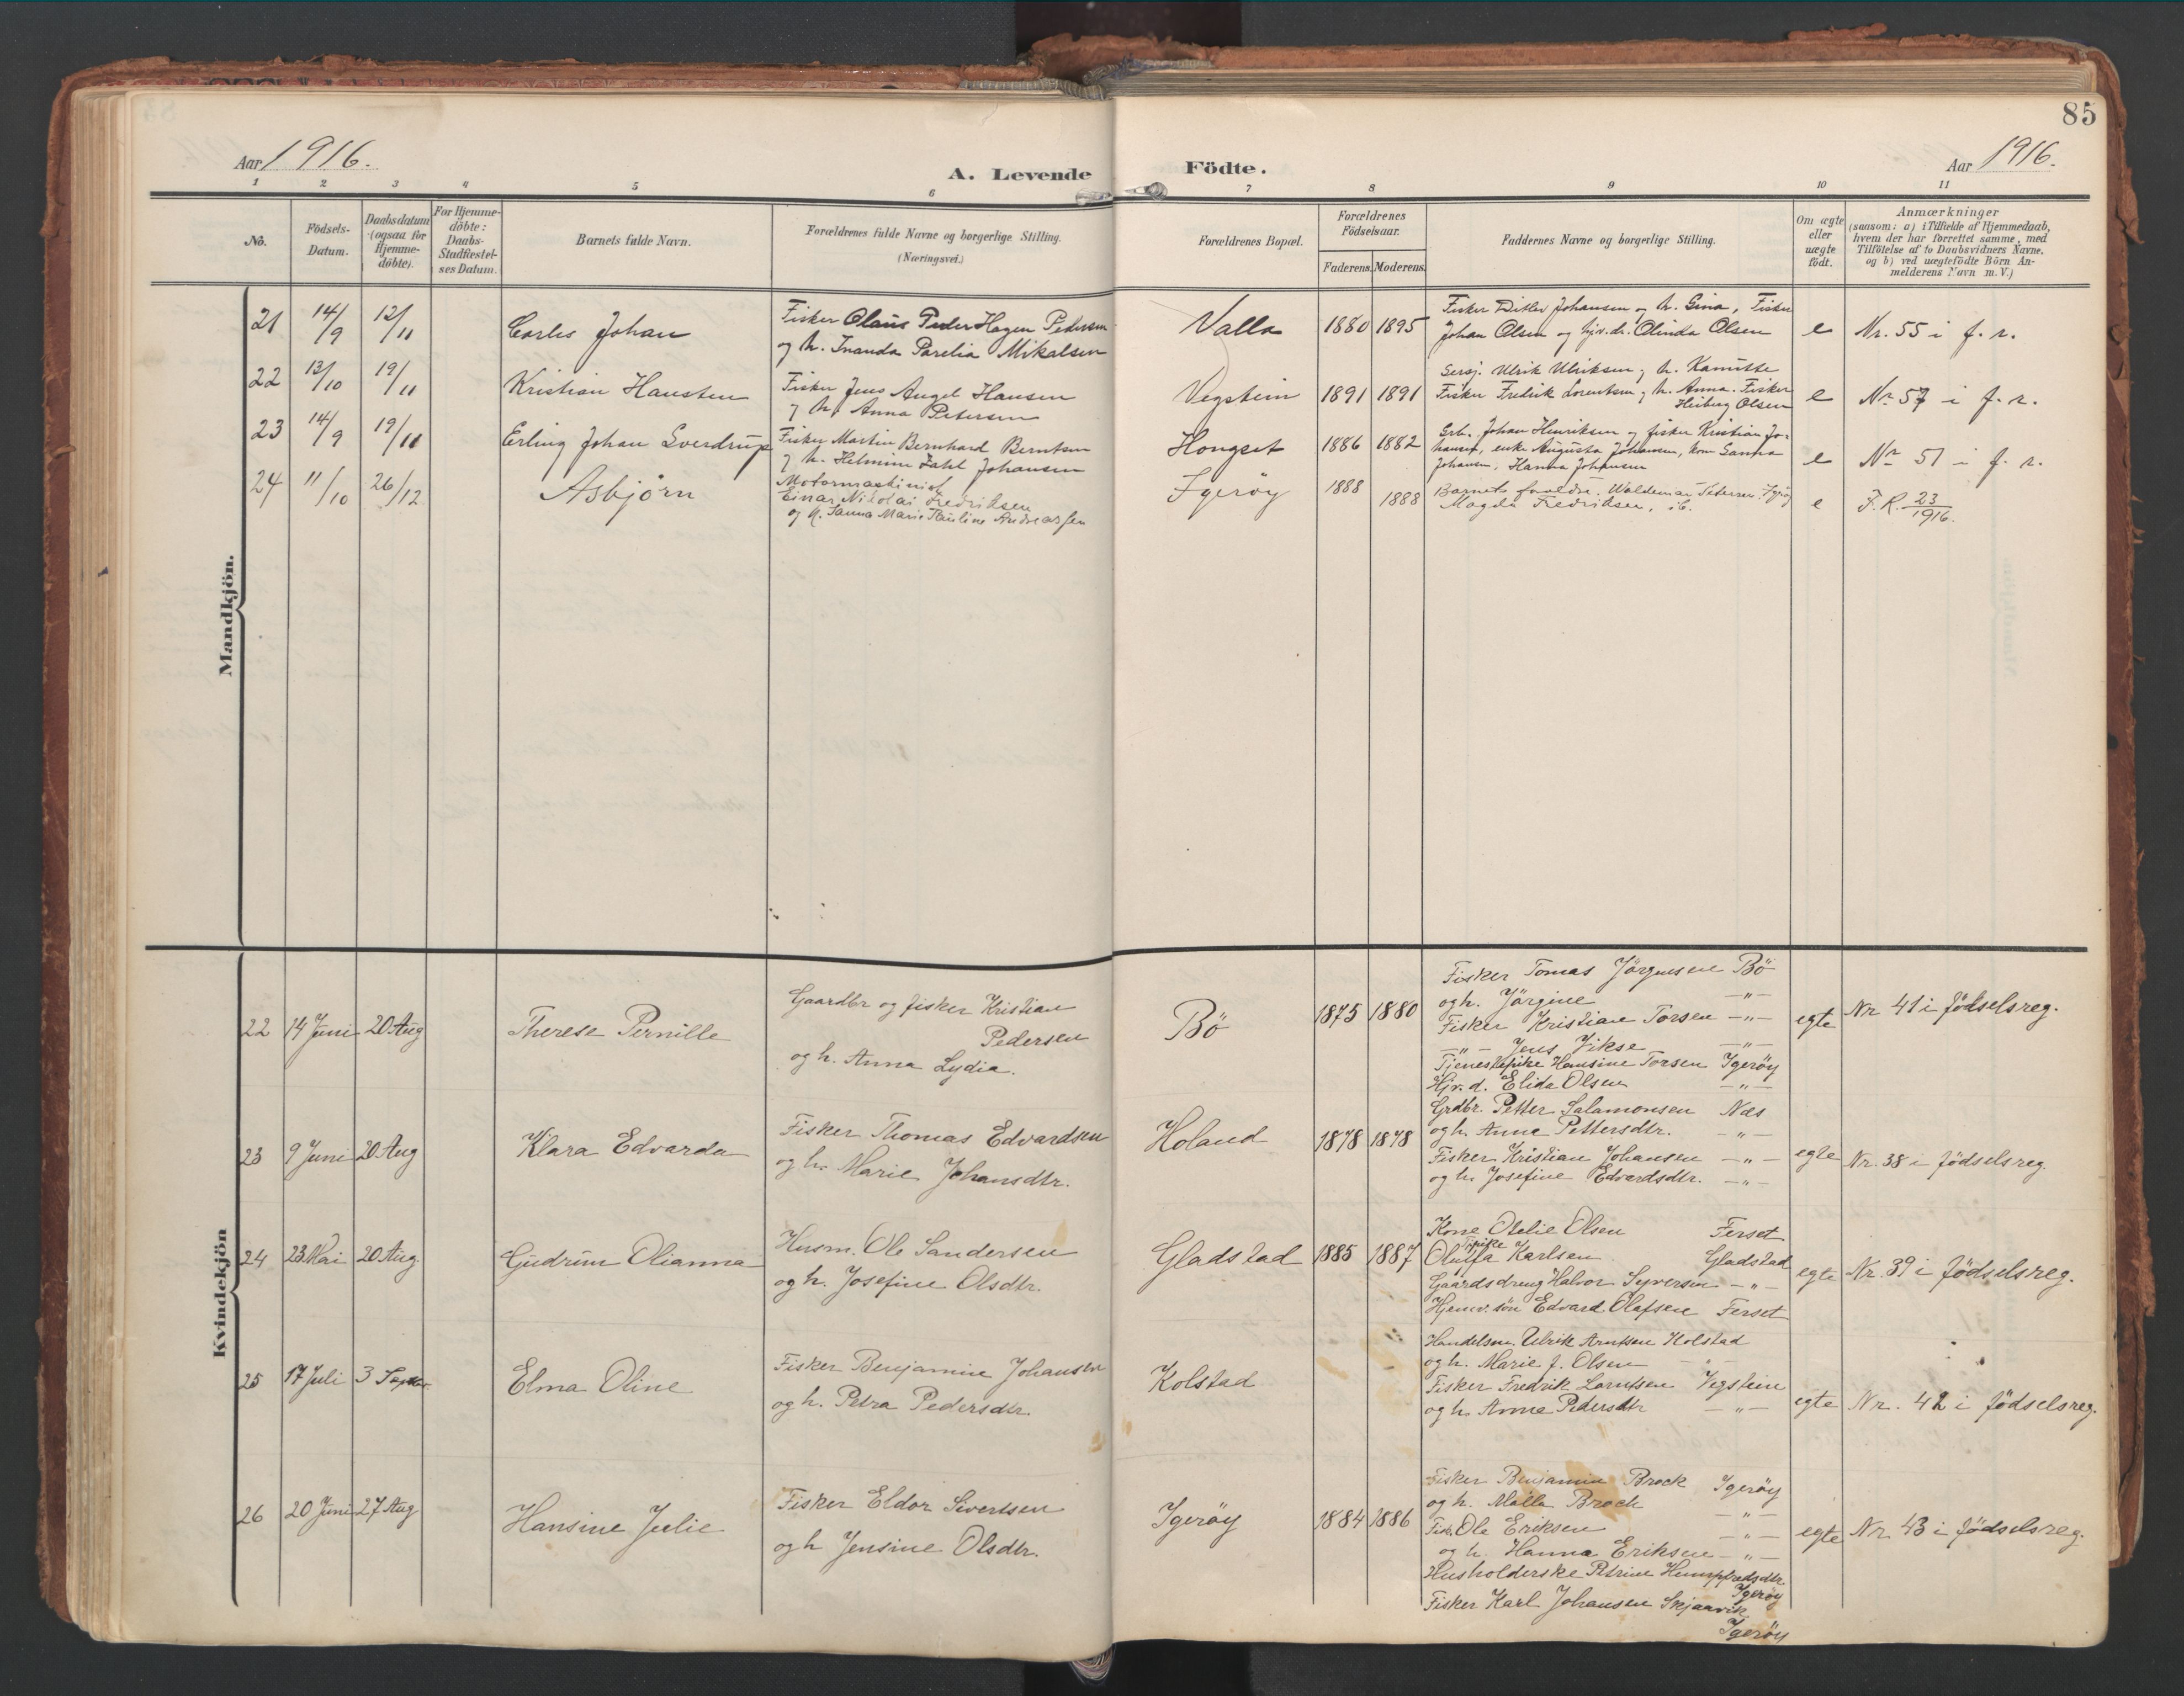 85
Aar 1916.
A. Levende Födte.
Aar 1916.
1 2 3 4 5 6 7 8 9 10 11
No.
Födsels-Datum.
Daabsdatum (ogsaa for Hjemme-döbte).
For Hjemme-döbte: Daabs-Stadfæstel-ses Datum.
Barnets fulde Navn.
Forældrenes fulde Navne og borgerlige Stilling.
(Næringsvei.)
Forældrenes Bopæl.
Forældrenes Födselsaar.
Faderens. Moderens.
Faddernes Navne og borgerlige Stilling.
Om ægte eller uægte födt.
Anmærkninger
(saasom: a) i Tilfælde af Hjemmedaab,
hvem der har forrettet samme, med
Tilföielse af to Daabsvidners Navne.
og b) ved uægtefödte Börn An-
melderens Navn m. V.)
Mandkjön.
21 14/9 12/11 Carles Johan
Fisker Olaus Peder Hagen Pedersen
og h. Inanda Parelia Mikalsen
Valla 1880 1895
Fisker Ditlev Johansen og h. Gina, Fisker
Johan Olsen og hjv.dr. Olinda Olsen
e Nr. 55 i f. r.
22 13/10 19/11 Kristian Hansten
Fisker Jens Angel Hansen
og h. Anna Petersen
Vegstein 1891 1891
Sersj. Ulrik Ulriksen, h. Kamitte
Fisker Fredrik Lorentsen, h. Anna. Fisker
Heiberg Olsen
e Nr 57 i f. r.
23 14/9 19/11 Erling Johan Sverdrup
Fisker Martin Bernhard Berntsen
og h. Helmine Zahl Johansen
Hongset 1886 1882
Grb. Johan Henriksen og fisker Kristian Jo-
hansen, enke Augusta Johansen, kone Sanna
Johansen, Hanna Johansen
e Nr 51 i f. r.
24 11/10 26/12 Asbjørn
Motormaskinist
Einar Nikolai Fredriksen
og h. Sanna Marie Pauline Andreassen
Igerøy 1888 1888
Barnets forældre. Waldemar Petersen Igrøy
Magda Fredriksen, ib.
e F.R. 23/1916.
Kvindekjön
22 14 Juni 20 Aug Therese Pernille
Gaardbr og fisker Kristian
Pedersen
og h. Anna Lydia.
Bö 1875 1880
Fisker Tomas Jörgensen Bö
og h. Jörgine —"—
Fisker Kristian Torsen —"—
—"— Jens Vikse —"—
Tjenestepike Hansine Torsen Igerøy
Hjv. d. Elida Olsen —"—
egte Nr 41 i födselsreg.
23 9 Juni 20 Aug Klara Edvarda
Fisker Thomas Edvardsen
og h. Marie Johansdtr.
Holand 1878 1878
Grdbr. Petter Salamonsen Næs
og h. Anne Pettersdtr. —"—
Fisker Kristian Johansen —"—
og h. Josefine Edvardsdtr. —"—
egte Nr. 38 i födselsreg.
24 23 Mai 20 Aug. Gudrun Olianna
Husm. Ole Sandersen
og h. Josefine Olsdtr.
Gladstad 1885 1887
Kone Otelie Olsen Ferset
Tjpike
Olufa Karlsen Gladstad
Gaardsdreng Halvor Syversen —"—
Hjemv. søn Edvard Olafsen Ferset
egte Nr. 39 i födselsreg.
25 17 Juli 3 Septbr. Elma Oline
Fisker Benjamin Johansen
og h. Petra Pedersdtr.
Kolstad
Handelsm. Ulrik Arntsen Kolstad
og h. Marie J. Olsen —"—
Fisker Fredrik Larntsen Vegstein
og h. Anna Pedersdtr —"—
egte Nr. 42 i födselsreg.
26 20 Juni 27 Aug Hansine Julie
Fisker Eldor Sivertsen
og h Jensine Olsdtr.
Igerøy 1884 1886
Fisker Benjamin Brock Igerøy
og h. Malla Brock —"—
Fisk. Ole Eriksen —"—
og h. Hanna Eriksen —"—
Husholderske Petrine Humpfredsdtr.
Igerøy
Fisker Karl Johansen Skjaavik
Igerøy
egte Nr. 43 i födselsreg.